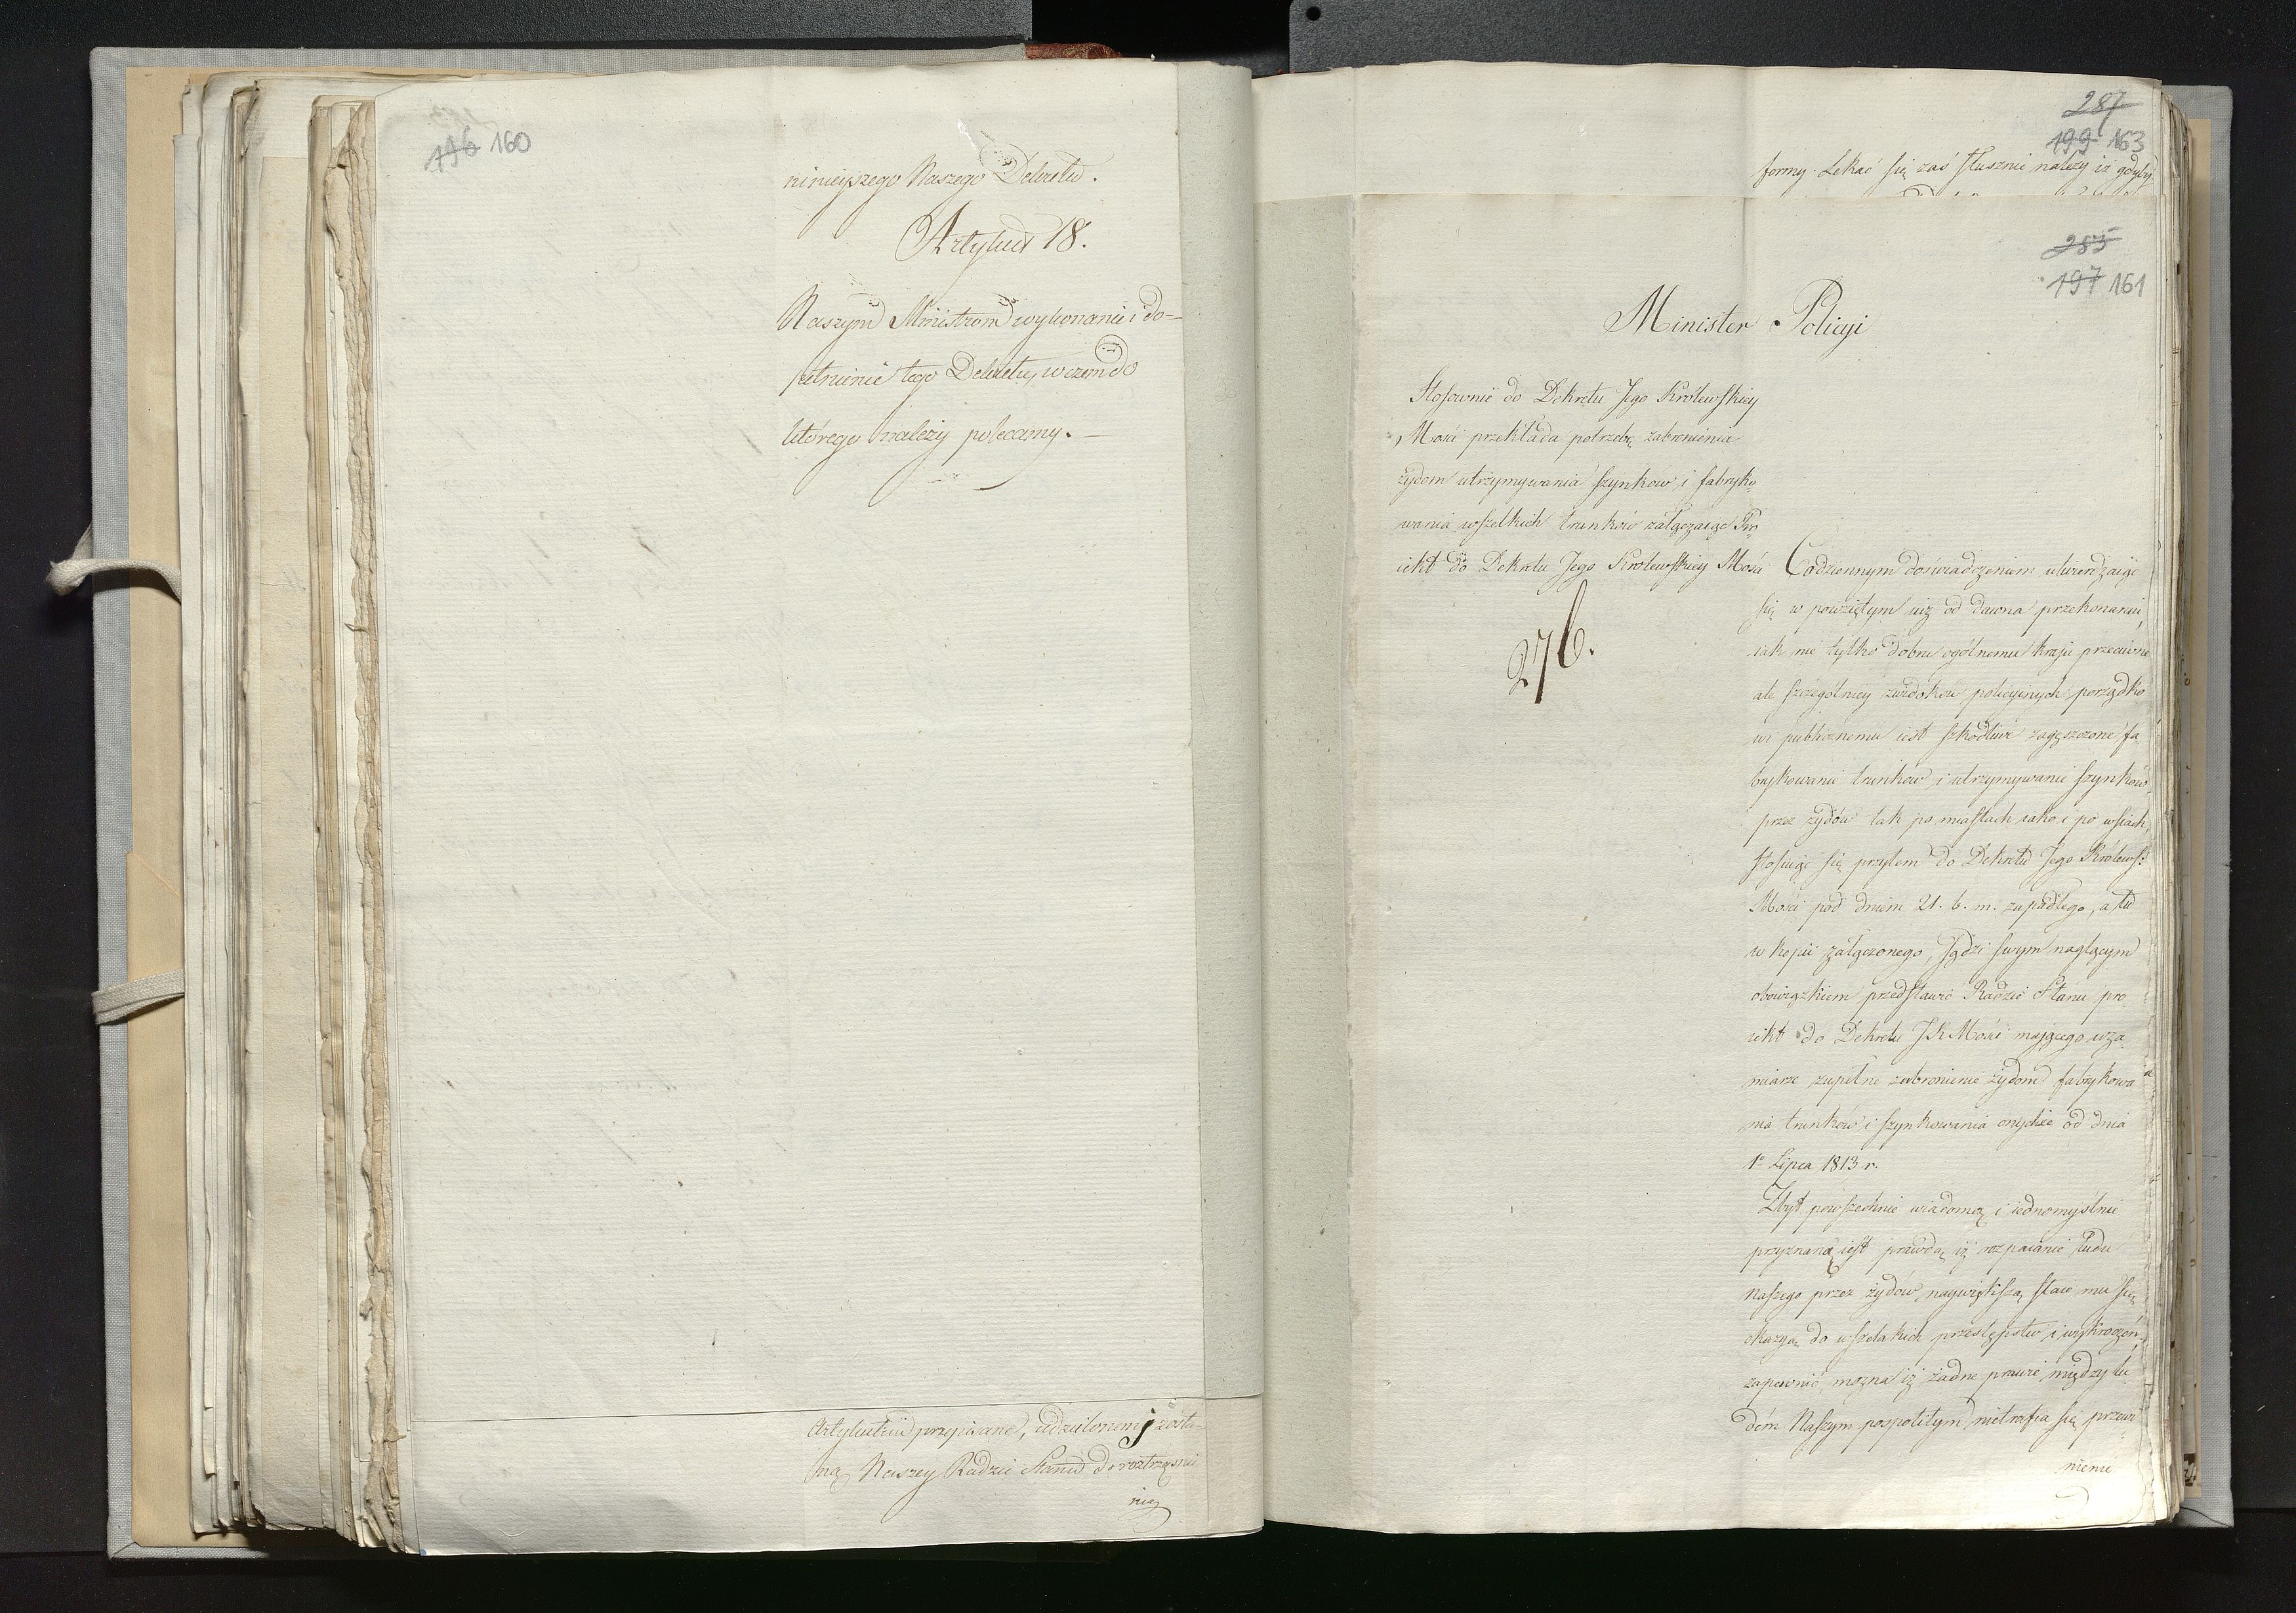 196 160
ninieyszego Naszego Dekretu.
Artykuł 18.
Naszym Ministrom wykonanie i do-
pełnienie tego Dekretu, w czem do
którego należy polecamy. —
Artykułem przepisane, udzielonemi zosta-
ną Naszey Radzie Stanu do roztrząśnie
nia
287
199 163
formy. Lękać się zaś słusznie należy iż gdyby
285
197 161
Minister Policyi
Stosownie do Dekretu Jego Królewskiey
Mości przekłada potrzebę zabronienia
żydom utrzymywania szynków i fabryko
wania wszelkich trunków załączaiąc Pro
iekt do Dekretu Jego Królewskiey Mości
276.
Codziennym doświadczeniem utwierdzaiąc
się w powziętym iuż od dawna przekonaniu,
iak nie tylko dobru ogólnemu kraju przeciwne
ale szczególniey z widoków policyinych porządko
wi publicznemu iest szkodliwe zagęszczone fa
brykowanie trunków i utrzymywanie szynków
przez żydów tak po miastach iako i po wsiach,
stosuiąc się przytem do Dekretu Jego Królews:
Mości pod dniem 21. b. m. zapadłego, a tu
w kopii załączonego, sądzi swym naglącym
obowiązkiem przedstawić Radzie Stanu pro
iekt do Dekretu JKMości mającego w za
miarze zupełne zabronienie żydom fabrykowa
nia trunków i szynkowania onychże od dnia
1º Lipca 1813 r.
Zbyt powszechnie wiadomą i iednomyślnie
przyznaną iest prawdą iż rozpaianie ludu
Naszego przez żydów naywiększą staie mu się
okazyą do wszelakich przestępstw i wykroczeń,
zapewnić można iż żadne prawie między lu
dem Naszym pospolitym nietrafia się przewi
nienie